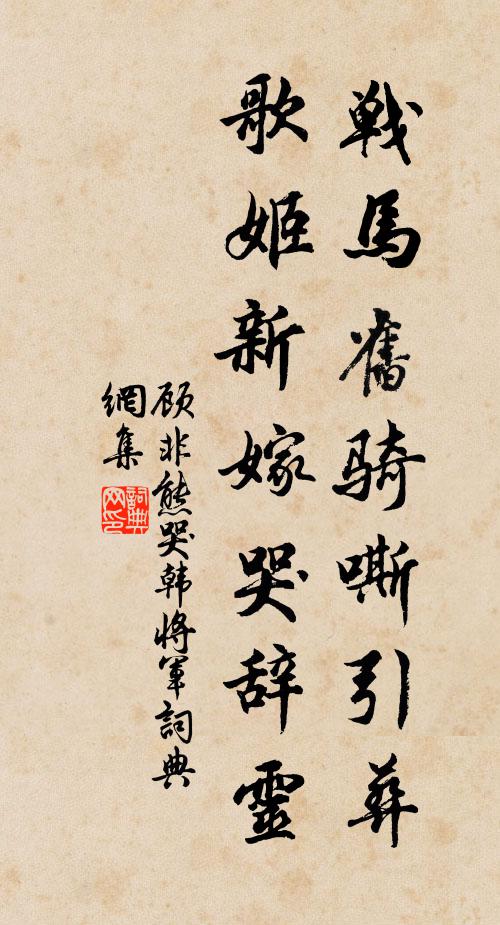 戰馬舊騎嘶引葬
歌姬新嫁哭辞靈
顾非熊哭韩将軍詞典
網集
詞典
网印